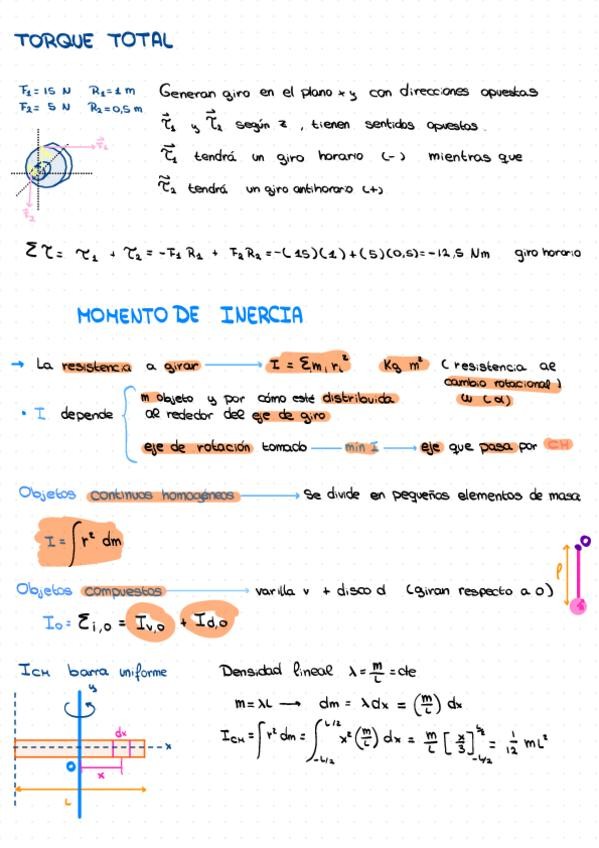 TORQUE TOTAL
F₁ = 15 N R₁ = 1 m
F₂ = 5 N R₂ = 0,5 m
Generan giro en el plano xy con direcciones opuestas
τ⃗₁ y τ⃗₂ según z, tienen sentidos opuestos.
τ⃗₁ tendrá un giro horario (-) mientras que
τ⃗₂ tendrá un giro antihorario (+)
F⃗₁
F⃗₂
Στ = τ₁ + τ₂ = -F₁R₁ + F₂R₂ = -(15)(1)+(5)(0,5) = -12,5 Nm giro horario
MOMENTO DE INERCIA
→ La resistencia a girar → I = Σmᵢrᵢ² Kg m² (resistencia al
cambio rotacional)
ω (α)
• I depende
m objeto y por cómo esté distribuida
al rededor del eje de giro
eje de rotación tomado — min I → eje que pasa por CM
Objetos continuos homogéneos → Se divide en pequeños elementos de masa
I = ∫r² dm
Objetos compuestos → varilla v + disco d (giran respecto a O)
O
I₀ = Σi,o = Iv,o + Id,o
ICM barra uniforme
Densidad lineal λ = m/L = cte
m = λL → dm = λdx = (m/L) dx
ICM = ∫r² dm = ∫_{-L/2}^{L/2} x² (m/L) dx = m/L [x/3]_{-L/2}^{L/2} = 1/12 mL²
y
dx
x
O
x
L